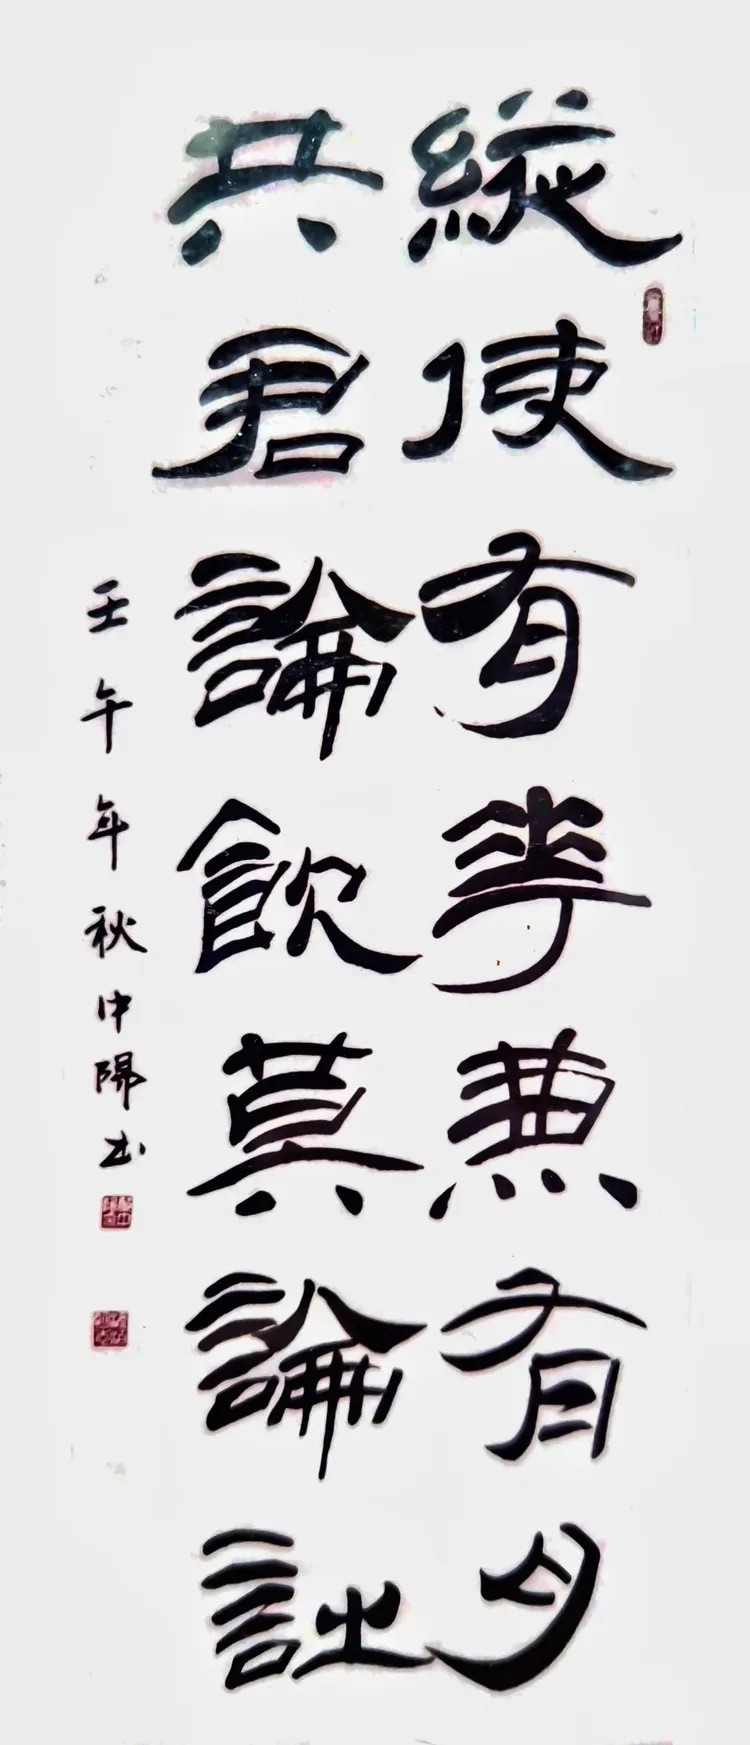 縱使有花兼有月
共君論飲莫論詩
壬午年秋中陽书